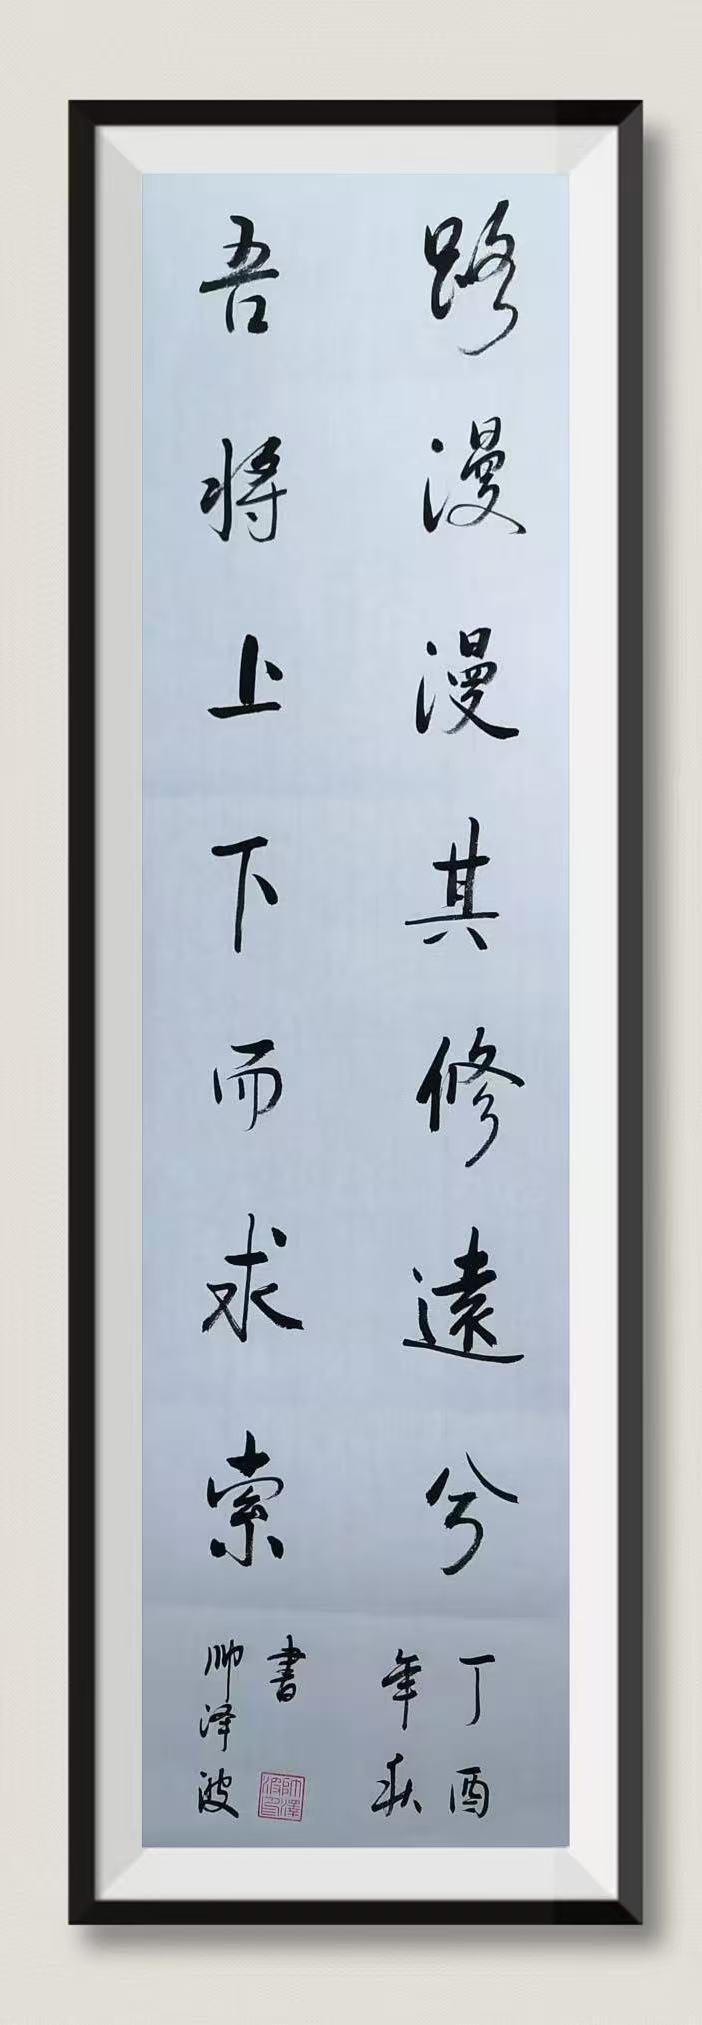 路漫漫其修遠兮
吾将上下而求索
丁酉
年秋
書
帅泽波
帅澤波印